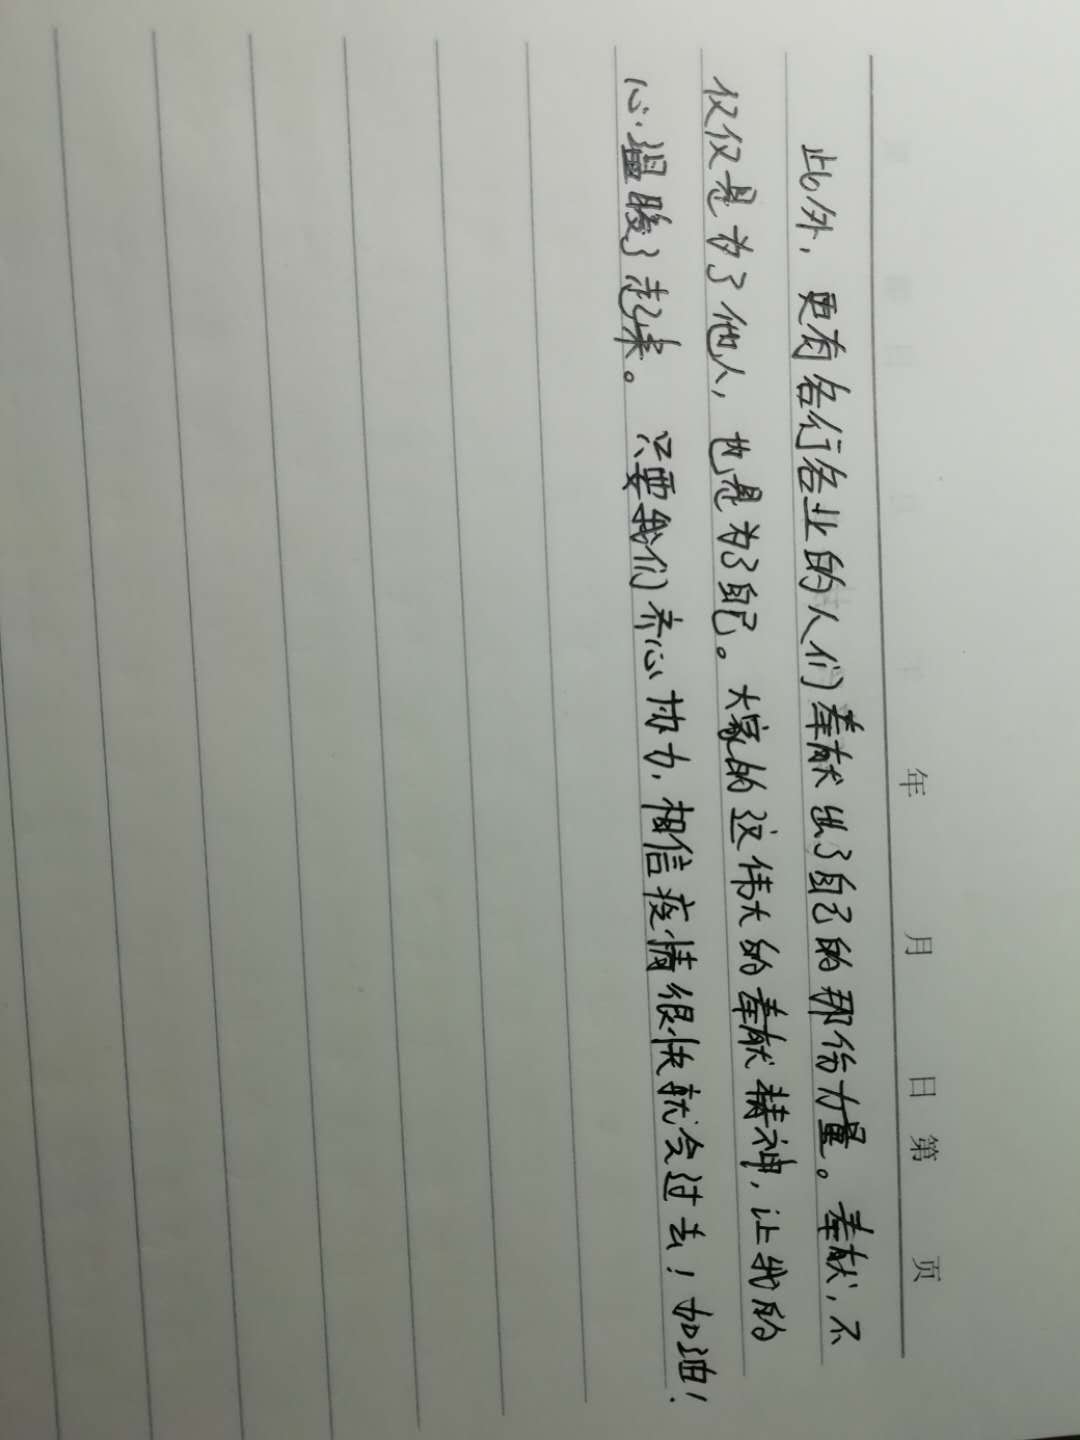 年 月 日 第 页
此外，更有各行各业的人们奉献出了自己的那份力量。奉献，不
仅仅是为了他人，也是为了自己。大家的这伟大的奉献精神，让我的
心温暖了起来。只要我们齐心协力，相信疫情很快就会过去！加油！